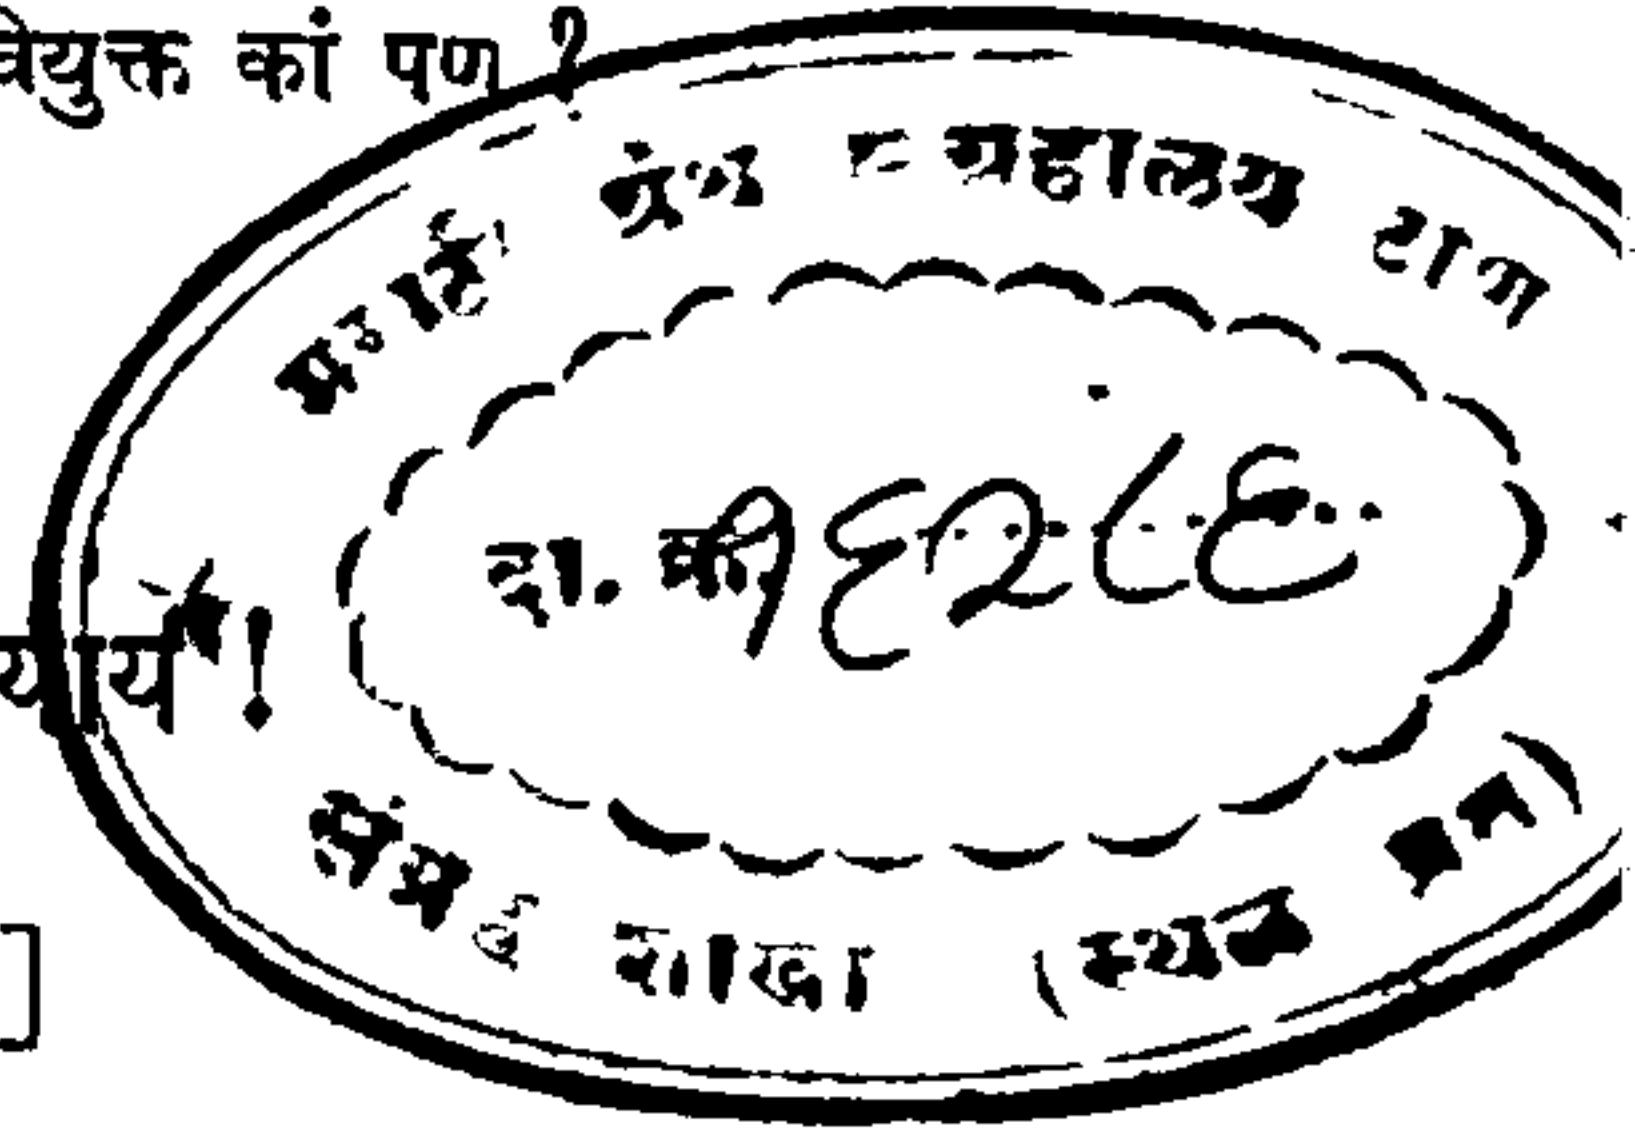 वियुक्त कां पण ?
मराठी ग्रंथ संग्रहालय ठाणे
दा. क्र. १६२८६
!
संदर्भ शाखा (स्थळ प्रत)